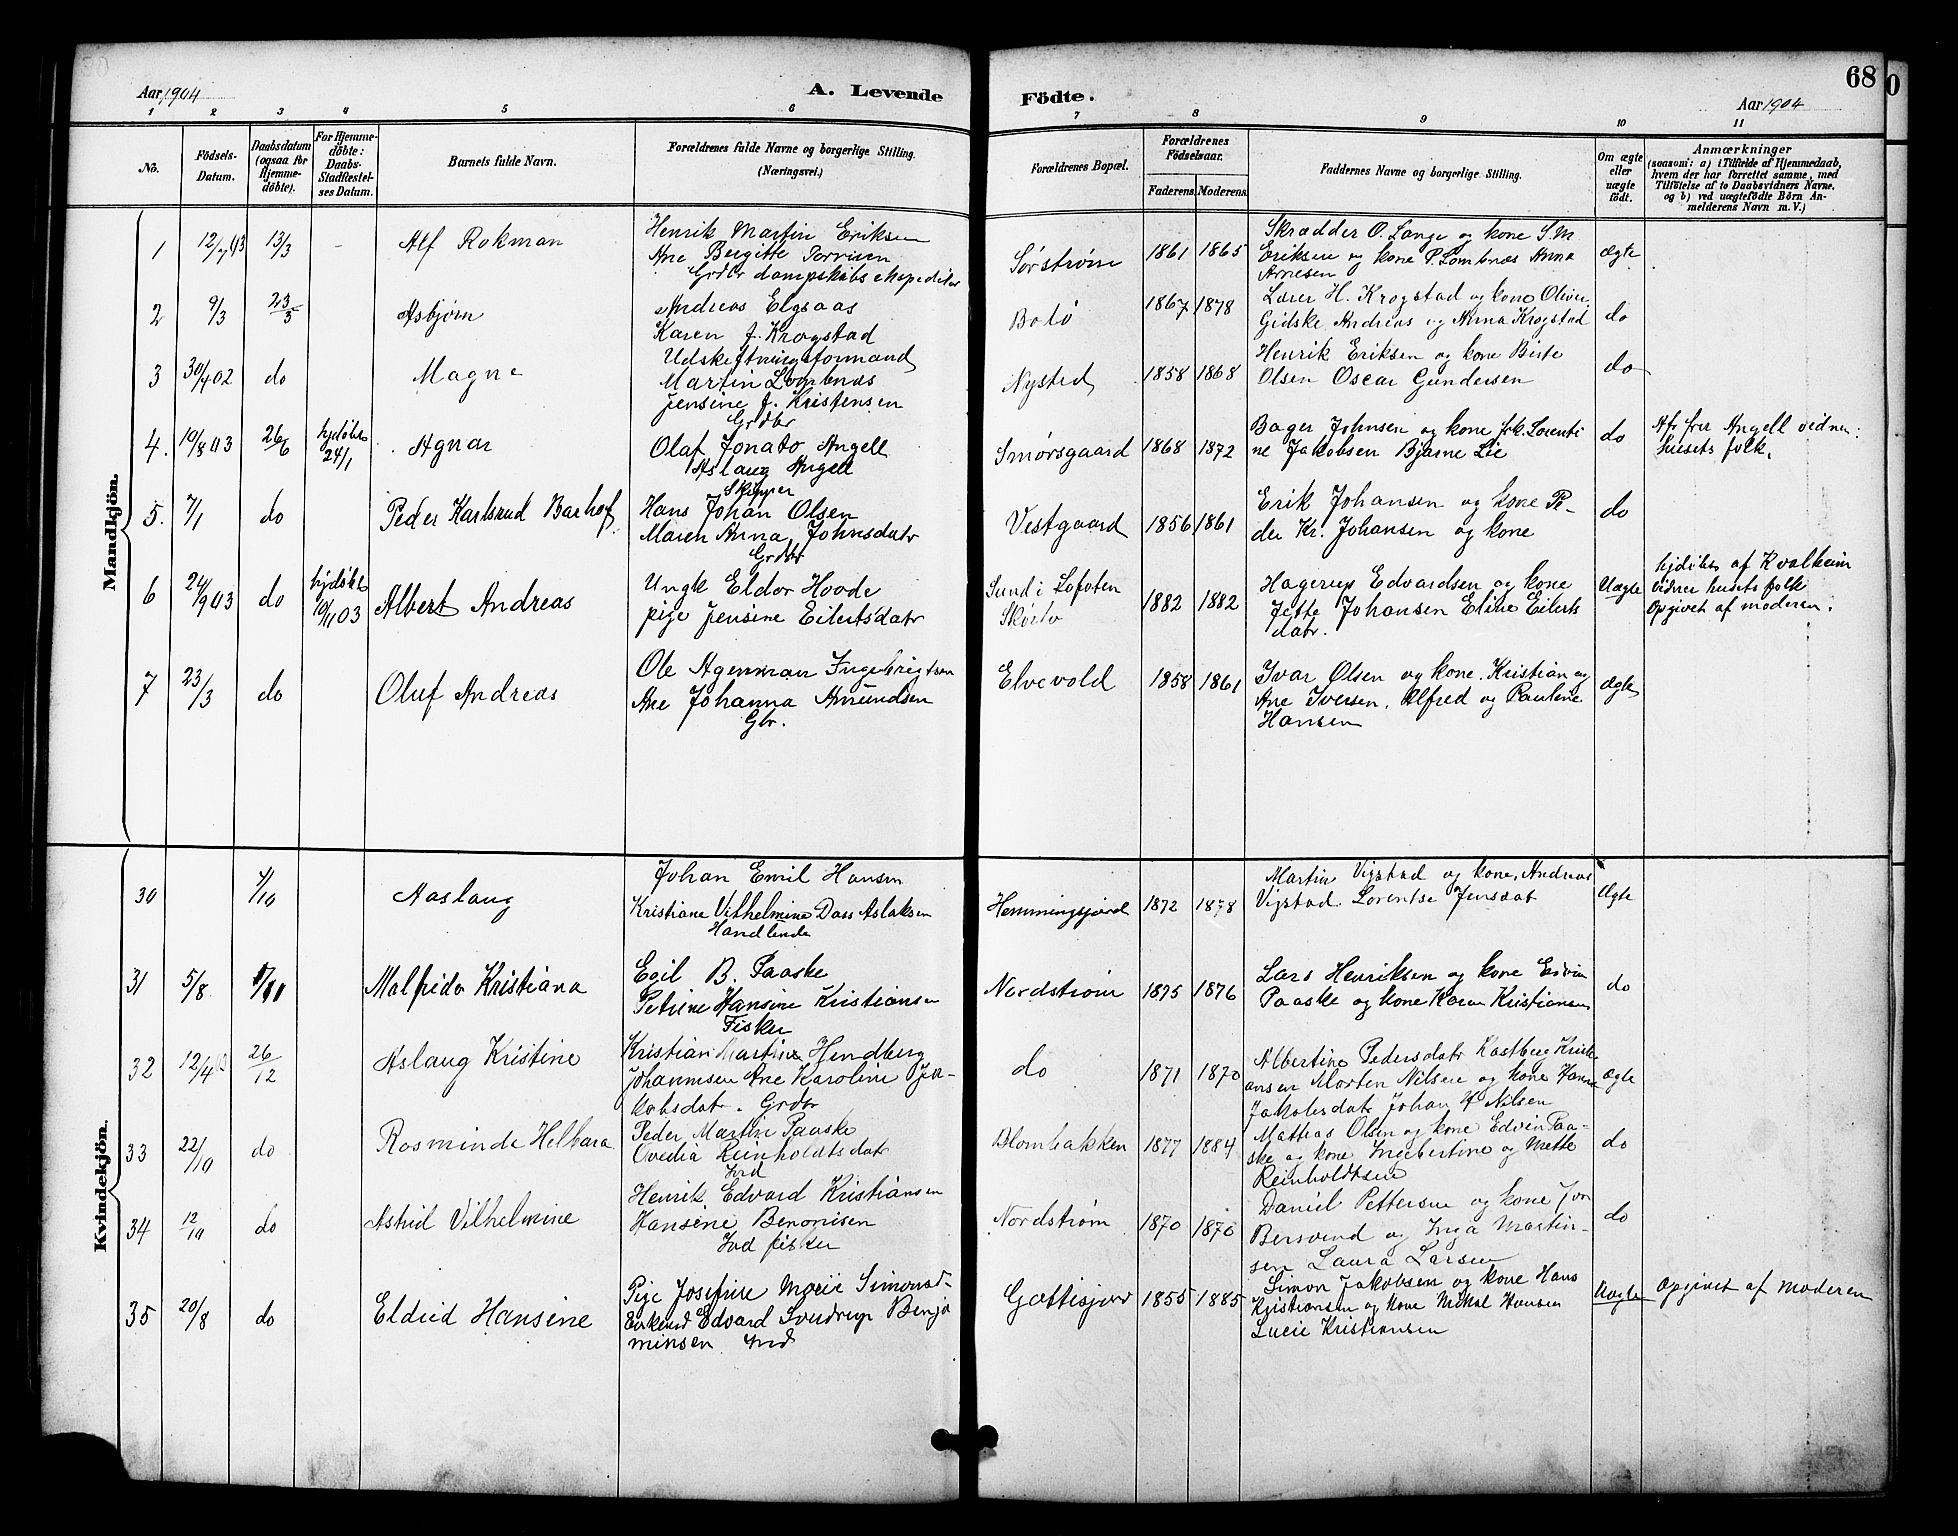 68
Aar 1904
A. Levende
Födte.
Aar 1904
1 2 3 4 5 6 7 8 9 10 11
No.
Födsels-
Datum.
Daabsdatum
(ogsaa for
Hjemme-
döbte).
For Hjemme-
döbte:
Daabs-
Stadfæstel-
ses Datum.
Barnets fulde Navn.
Forældrenes fulde Navne og borgerlige Stilling.
(Næringsvei.)
Forældrenes Bopæl.
Forældrenes
Födselsaar.
Faderens. Moderens.
Faddernes Navne og borgerlige Stilling.
Om ægte
eller
uægte
födt.
Anmærkninger
(saasom: a) i Tilfælde af Hjemmedaab,
hvem der har forrettet samme, med
Tilföielse af to Daabsvidners Navne.
og b) ved uægtefödte Börn An-
melderens Navn m. V.)
Mandkjön.
1 13/3 Alf Rokman
Henrik Martin Eriksen
Ane Bergitte
Grdbr dampskibsexpeditør
Sørstrøm 1861 1865
Skrædder O. Lange og kone S. M
Eriksen og kone P. Lombnæs Anna
Arnesen
Ægte
2 9/3 23/3 Asbjørn
Andreas Elgsaas
Karen f. Krogstad
Udskiftningsformand
Bolö 1867 1878
Lærer H. Krogstad og kone Oliver
Gidske Andreas og Anna Krogstad
do
3 30/4 02 do Magne
Martin Lombnæs
Jensine f. Kristensen
Grdbr
Nysted 1858 1868
Henrik Eriksen og kone Birte
Olsen Oscar Gundersen
do
4. 10/8 03 26/6 hjdöbt
24/1
Agnar
Olaf Jonato Angell
Aslaug Angell
Skipper
Smørsgaard 1868 1872
Bager Johnsen og kone frk. Lorenti
ne Jakobsen Bjarne Lie
do
Af fru Angell vidner:
husets folk.
5. 7/1 do Peder Karlsrud Barhof
Hans Johan Olsen
Maren Anna Johnsdatr
Grdbr
Vestgaard 1856 1861
Erik Johansen og kone Pe-
der Kr. Johansen og kone
do
6 24/9 03 do hjdöbt
10/1 03
Albert Andreas
Ungk Eldor Hovde
pige Jensine Eilertsdatr
Sund i Lofoten
1882 1882
Hagerup Edvardsen og kone
Jette Johansen Eline Eilerts
datr.
Uægte
hjdöbt af Kvalheim
vidner husets folk
Opgivet af moderen.
7 23/3 do Oluf Andreas
Ole Agenman Ingebrigtsen
Ane Johanna Amundsen
Gbr.
Elvevold 1858 1861
Ivar Olsen og kone. Kristian og
Ane Iversen. Alfred og Pauline
Hansen
Ægte
Kvindekjön.
30 Aaslaug
Johan Emil Hansen
Kristiane Vilhelmine Dass Aslaksen
Handlende
Hemmingsjord 1872 1878
Martin Vigstad og kone, Andreas
Vigstad. Lorentse Jensdat
Ægte
31 5/8 Malfrida Kristiana
Egil B. Paaske
Petrine Hansine Kristiansen
Fisker
Nordstrøm 1875 1876
Lars Henriksen og kone Edvin
Paaske og kone Karen Kristiansen
do
32 12/4 26/12 Aslaug Kristine
Kristian Martin Hendberg
Johannesen Ane Karoline Ja-
kobsdatr. Grdbr
do 1871 1870
Albertine Pedersdatr Kastberg Kristi-
ansen Morten Nilsen og kone Hanna
Jakobsdatr Johan Nilsen
Ægte
33 22/10 do Rosminde Helbara
Peder Martin Paaske
Ovedia Reinholdtsdatr
Ind
Blombakken 1877 1884
Mattias Olsen og kone Edvin Paa-
ske og kone Ingebertine og Mette
Reinholdtsen
do
34 12/10 do Astrid Vilhelmine
Henrik Edvard Kristiansen
Hansine Benonisen
Ind fisker
Nordstrøm 1870 1876
Daniel Pettersen og kone Jon
Bersvend og Inga Martin-
sen Laura Larsen
do
35 20/8 do Eldrid Hansine
Pige Josefine Marie Simonsd-
Enkemd Edvard Sverdrup Benja
minsen Ind
Gottisjord 1855 1885
Simon Jakobsen og kone Hans
Kristiansen og kone Mikal Hansen
Lucie Kristiansen
Uægte
Opgivet af moderen